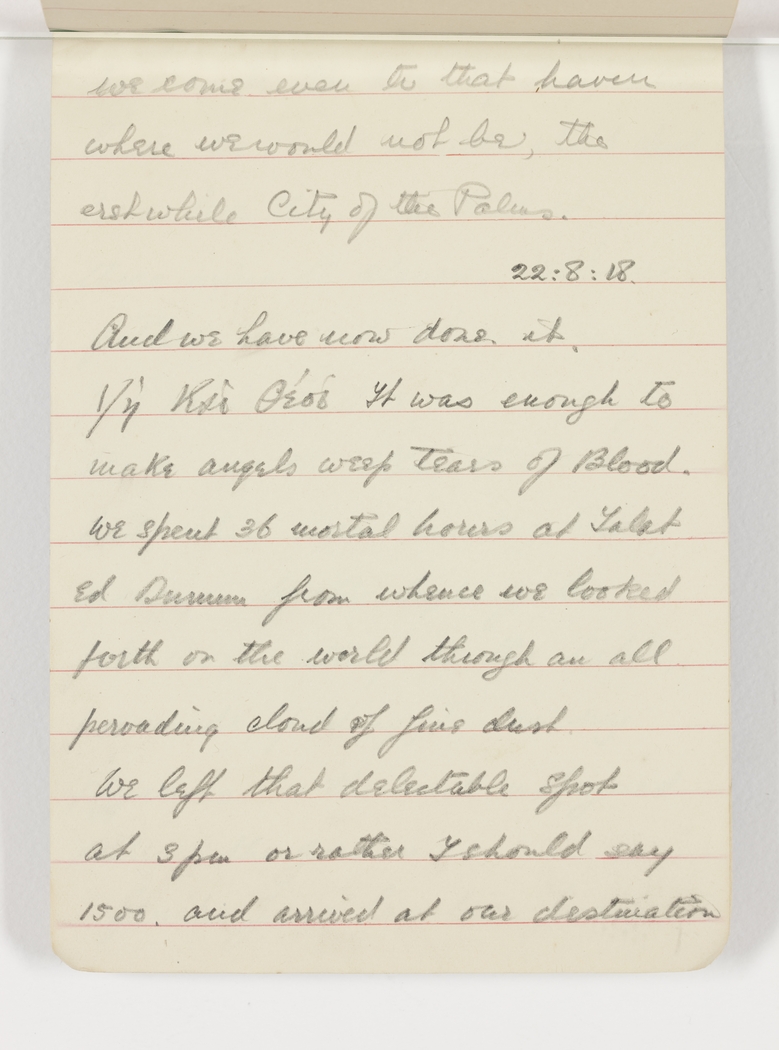 we come even to that haven
where we would not be, the
erstwhile City of the Palms.
22:8:18.
And we have now done it.
It was enough to
make angels weep Tears of Blood.
We spent 36 mortal hours at Talat
Ed Dumm from whence we looked
forth on the world through an all
pervading cloud of fine dust
We left that delectable spot
at 3 pm or rather I should say
1500. and arrived at our destination